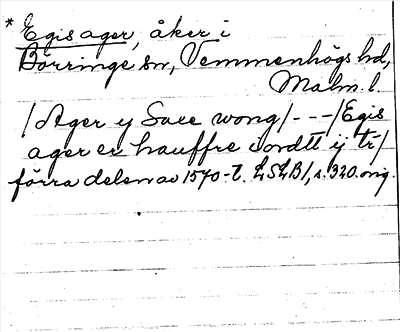 * Egis ager, åker i
Börringe sn, Vemmenhögs hd,
Malm. l.
/Ager y Saee wong/ - - - /Egis
ager er hauffre iordtt ij tr/
förra delen av 1570-t. LSLB/, s. 320. orig.